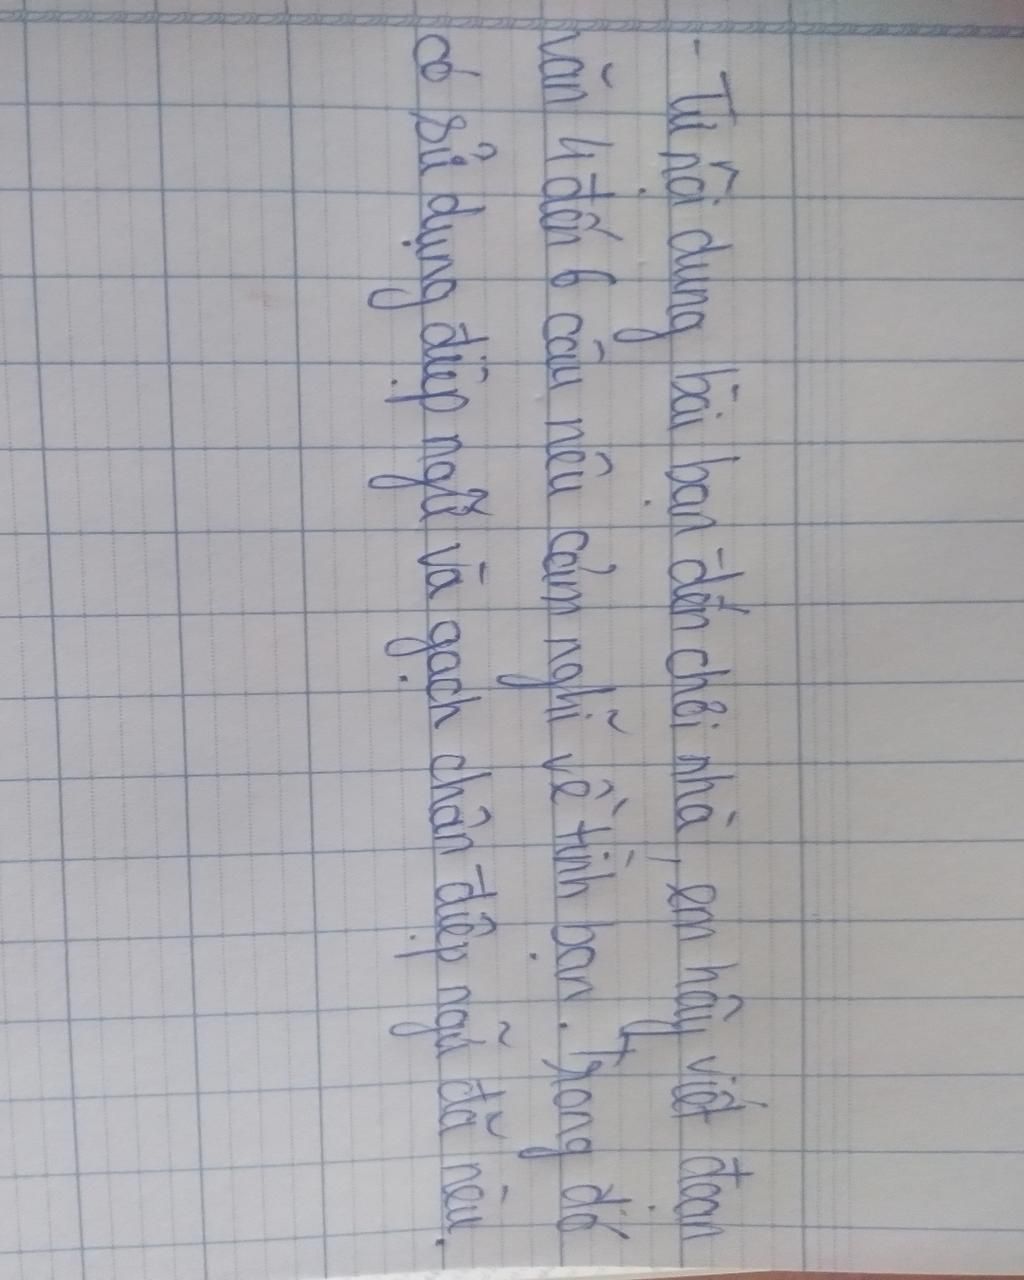 - Từ nội dung bài bạn đến chơi nhà, em hãy viết đoạn
văn 4 đến 6 câu nêu cảm nghĩ về tình bạn. Trong đó
có sử dụng điệp ngữ và gạch chân điệp ngữ đã nêu.